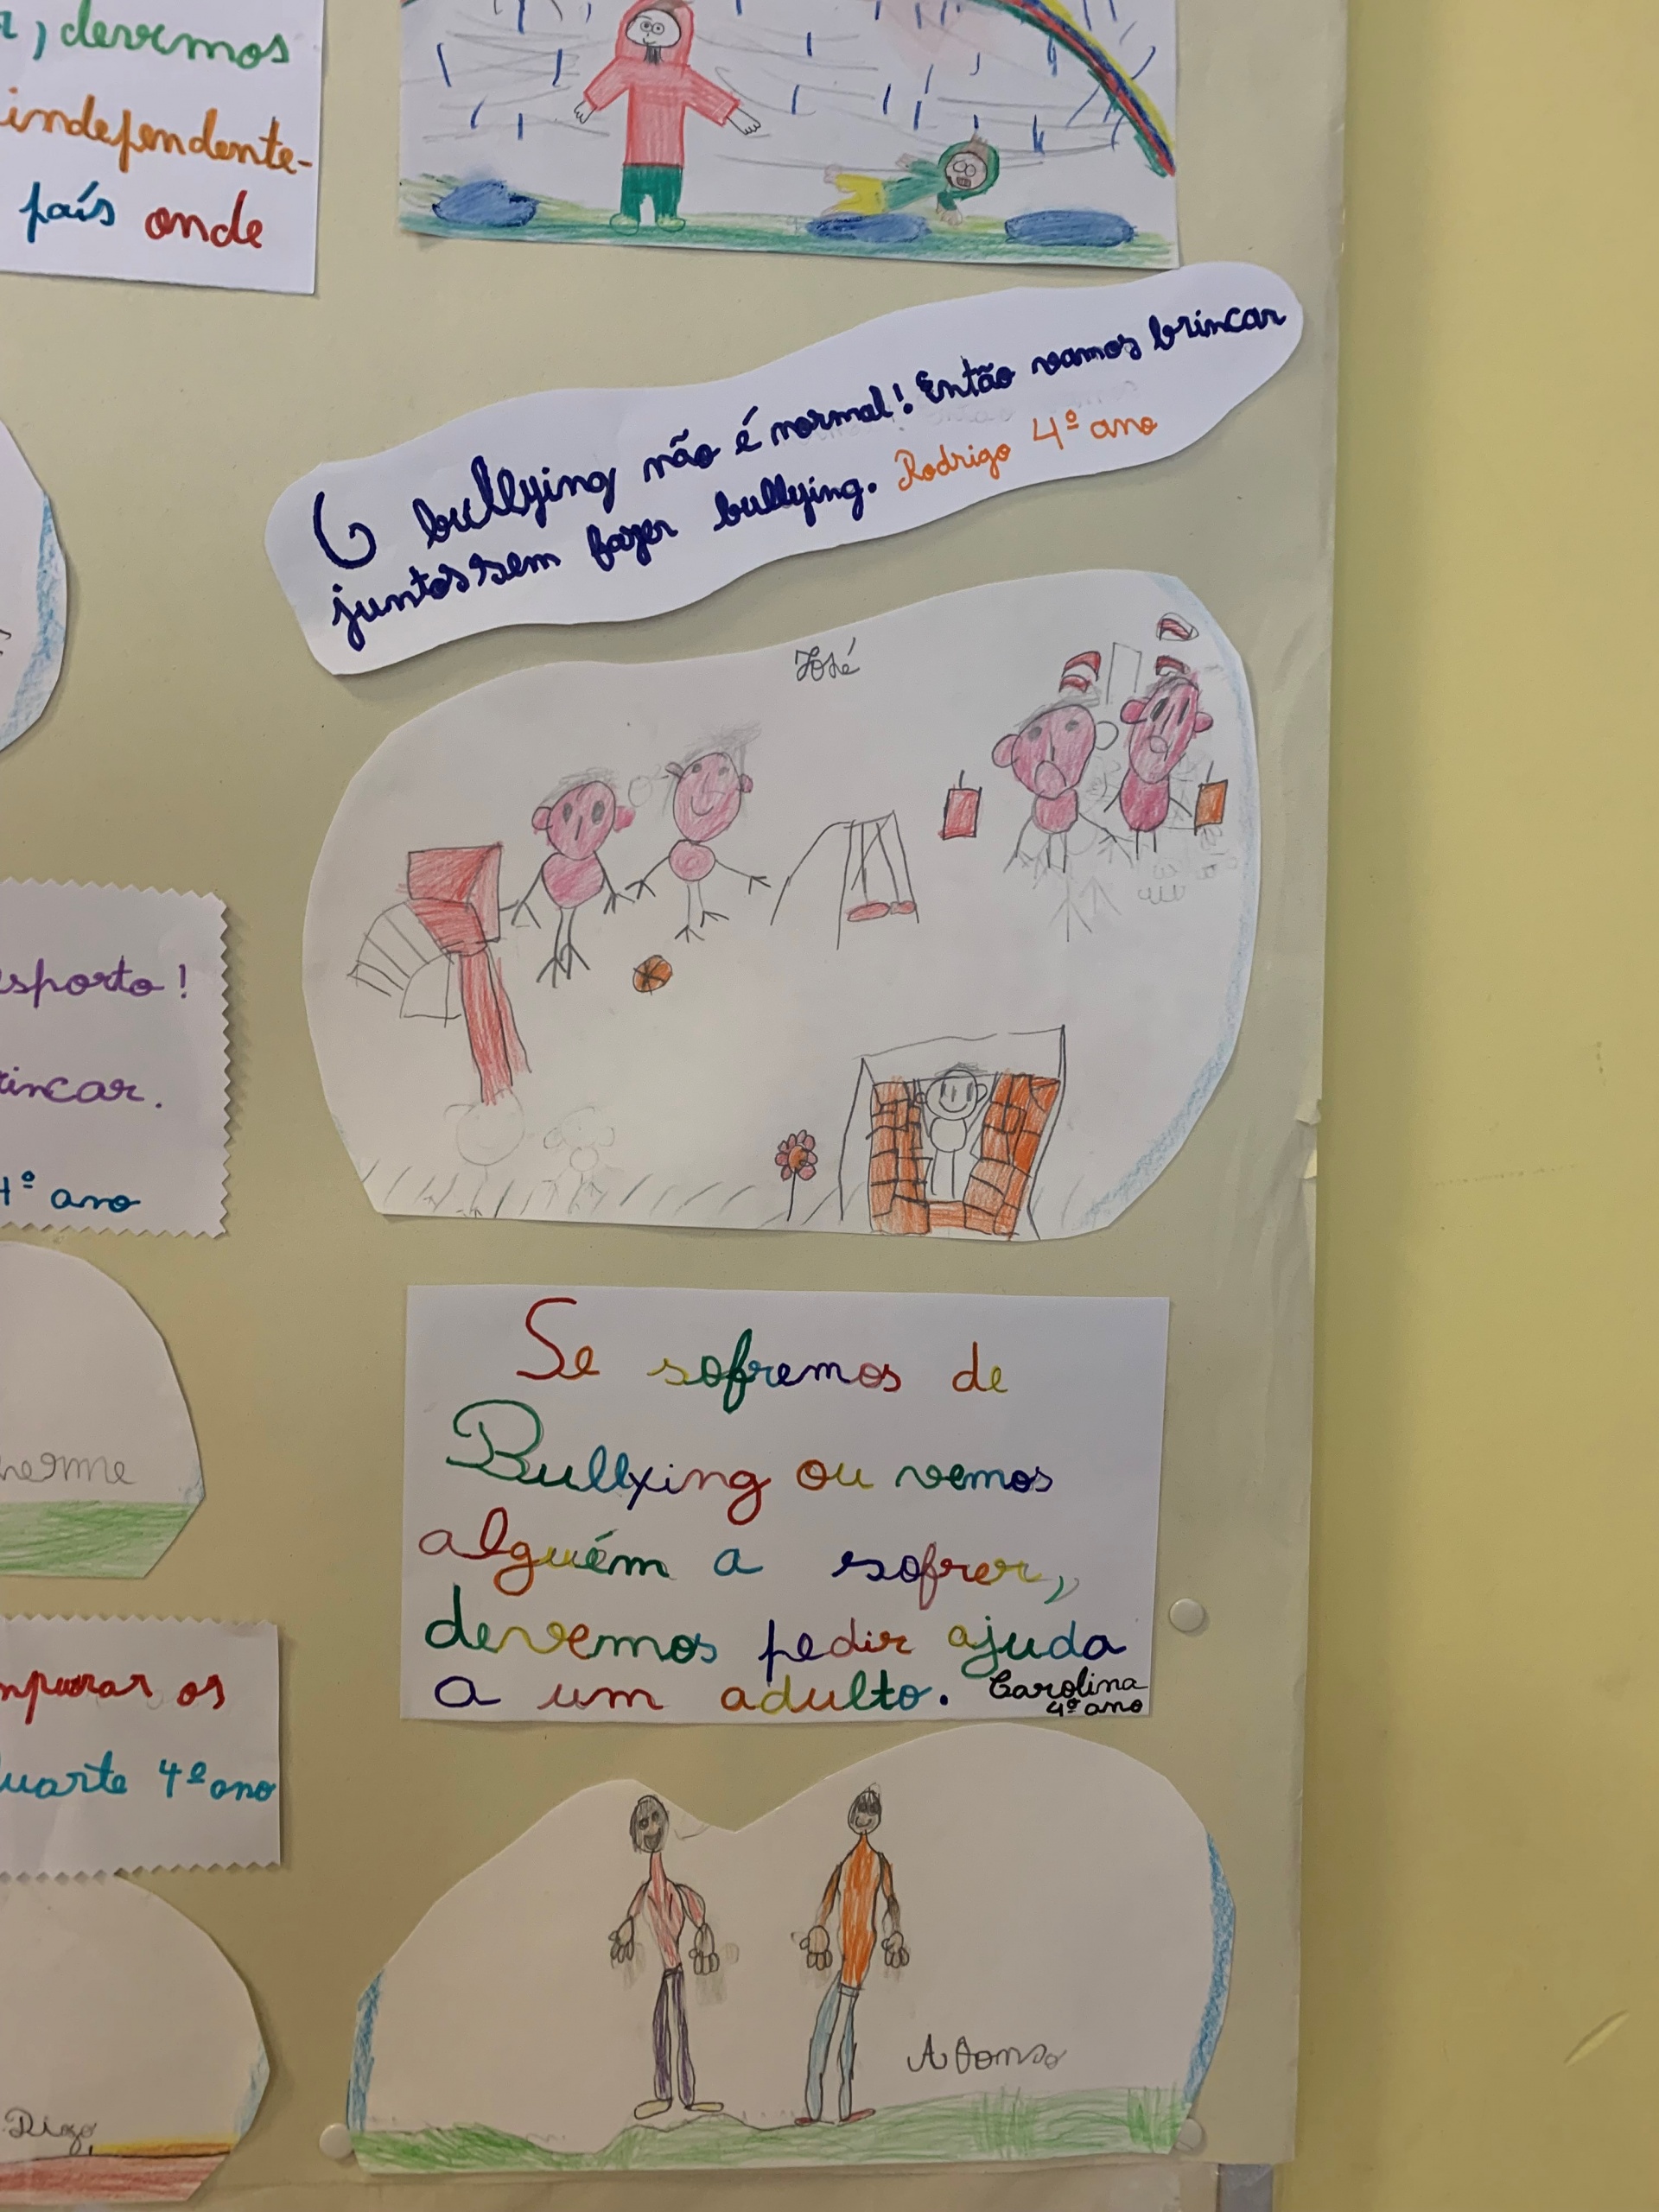 , devemos
independente-
país onde
O bullying não é normal! Então vamos brincar
juntos sem fazer bullying. Rodrigo 4º ano
José
esporto!
rincar.
4º ano
Se sofremos de
Bullying ou vemos
alguém a sofrer,
devemos pedir ajuda
a um adulto. Carolina
4º ano
herme
mpurrar os
uarte 4º ano
Afonso